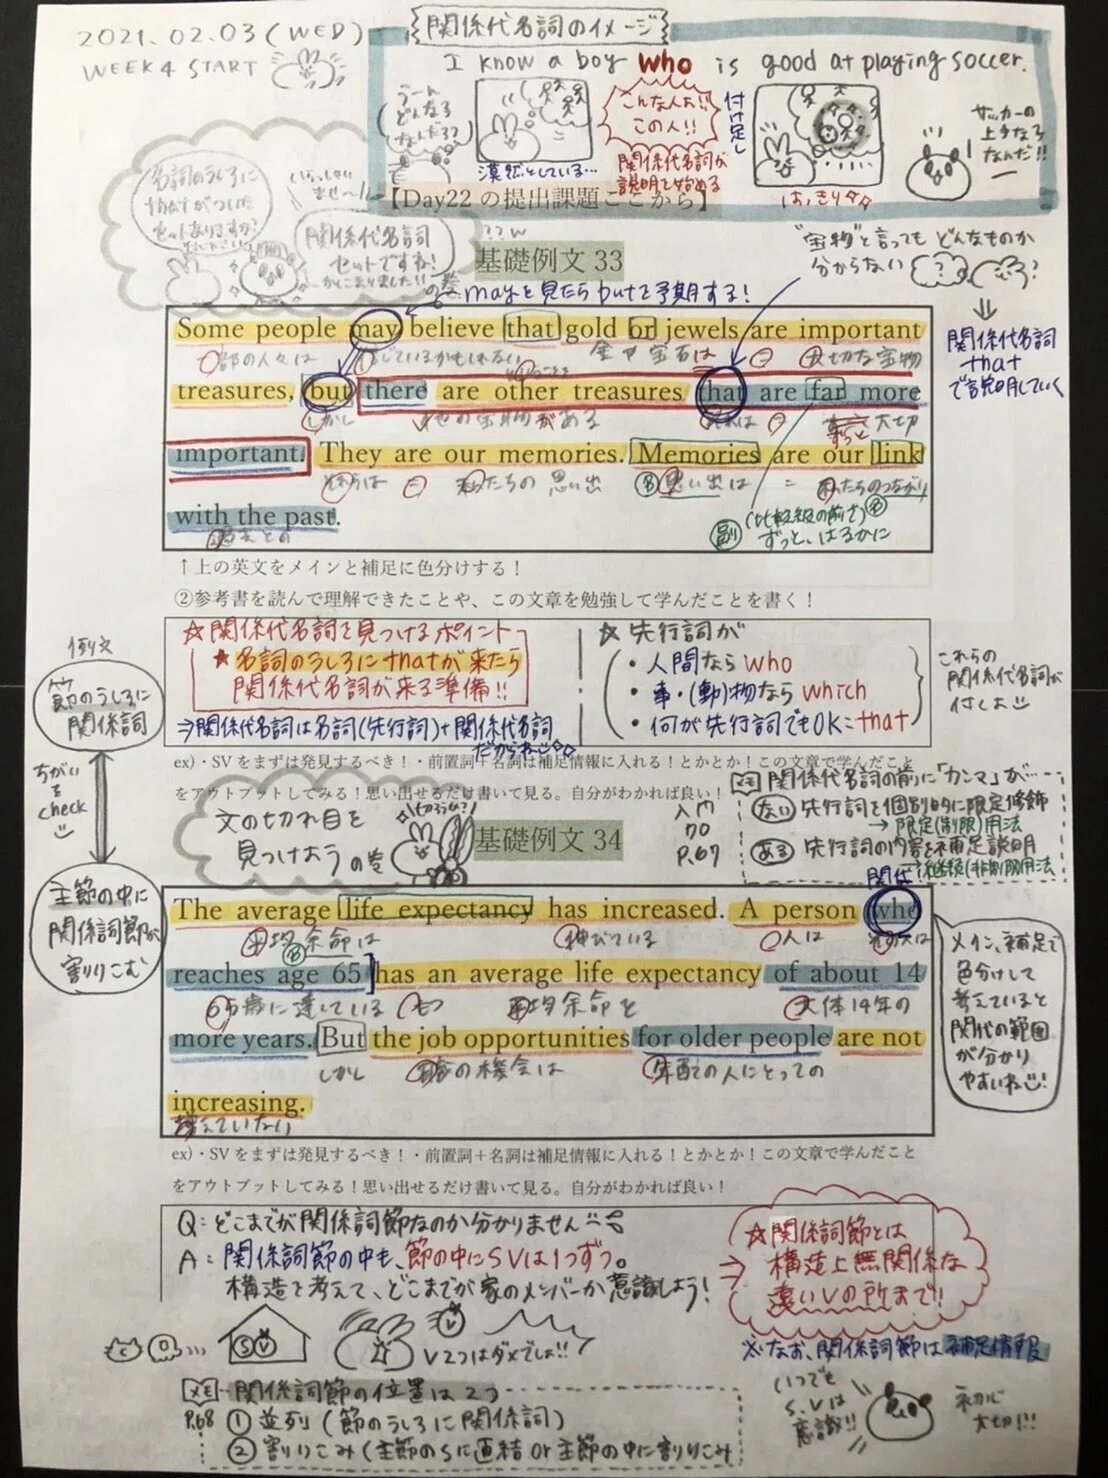 2021.02.03(WED)
WEEK4 START
関係代名詞のイメージ
I know a boy who is good at playing soccer.
うーん
どんな子
なんだろ?
漠然としている…
こんな人よ!!
この人!!
関係代名詞が
説明を始める
付け足し
はっきり
サッカーの
上手な子
なんだ!!
【Day22 の提出課題ここから】
名詞のうしろに
thatがついた
セットありますか?
いらっしゃい
ませ〜!
関係代名詞
セットですね!
かしこまりました!!
の巻
??w
基礎例文 33
mayを見たらbutを予期する!
"宝物"と言っても どんなものか
分からない
関係代名詞
that
で説明していく
Some people may believe that gold or jewels are important
一部の人々は 信じているかもしれない 金や宝石は = 大切な宝物
treasures, but there are other treasures that are far more
しかし 他の宝物がある それは = ずっと 大切
important. They are our memories. Memories are our link
それらは = 私たちの 思い出 名 思い出は = 私たちのつながり
with the past.
過去との
副 (比較級の前で)
ずっと、はるかに
↑上の英文をメインと補足に色分けする!
②参考書を読んで理解できたことや、この文章を勉強して学んだことを書く!
☆関係代名詞を見つけるポイント
★名詞のうしろにthatが来たら
関係代名詞が来る準備!!
⇒関係代名詞は名詞(先行詞)+関係代名詞
だからね
☆先行詞が
・人間なら who
・事・(動)物なら which
・何が先行詞でもOK=that
これらの
関係代名詞が
付くよ
ex)・SV をまずは発見するべき!・前置詞+名詞は補足情報に入れる!とかとか!この文章で学んだこと
をアウトプットしてみる!思い出せるだけ書いて見る。自分がわかれば良い!
例文
節のうしろに
関係詞
ちがい
を
check
主節の中に
関係詞節が
割りこむ
文の切れ目を
見つけよう の巻
切ろうか?
基礎例文 34
入門
70
P.67
メモ 関係代名詞の前に「カンマ」が…
ない 先行詞を個別的に限定修飾
→限定(制限)用法
ある 先行詞の内容を補足説明
→継続(非制限)用法
関代!
The average life expectancy has increased. A person who
平均余命は 名 伸びている 人は その人は
reaches age 65 has an average life expectancy of about 14
65歳に達している もつ 平均余命を 大体14年の
more years. But the job opportunities for older people are not
しかし 職の機会は 年配の人にとっての
increasing.
増えていない
メイン、補足で
色分けして
考えていると
関代の範囲
が分かり
やすいね!
ex)・SV をまずは発見するべき!・前置詞+名詞は補足情報に入れる!とかとか!この文章で学んだこと
をアウトプットしてみる!思い出せるだけ書いて見る。自分がわかれば良い!
Q:どこまでが関係詞節なのか分かりません
A:関係詞節の中も、節の中にSVは1つずつ。
構造を考えて、どこまでが家のメンバーか意識しよう!
☆関係詞節とは
⇒構造上無関係な
遠いVの所まで!!
※なお、関係詞節は補足情報
SV
V
V2つはダメでしょ!!
メモ 関係詞節の位置は2つ
P.68 ① 並列(節のうしろに関係詞)
② 割りこみ(主節のSに直結 or 主節の中に割りこみ
いつでも
S、Vは
意識!!
初心
大切!!!